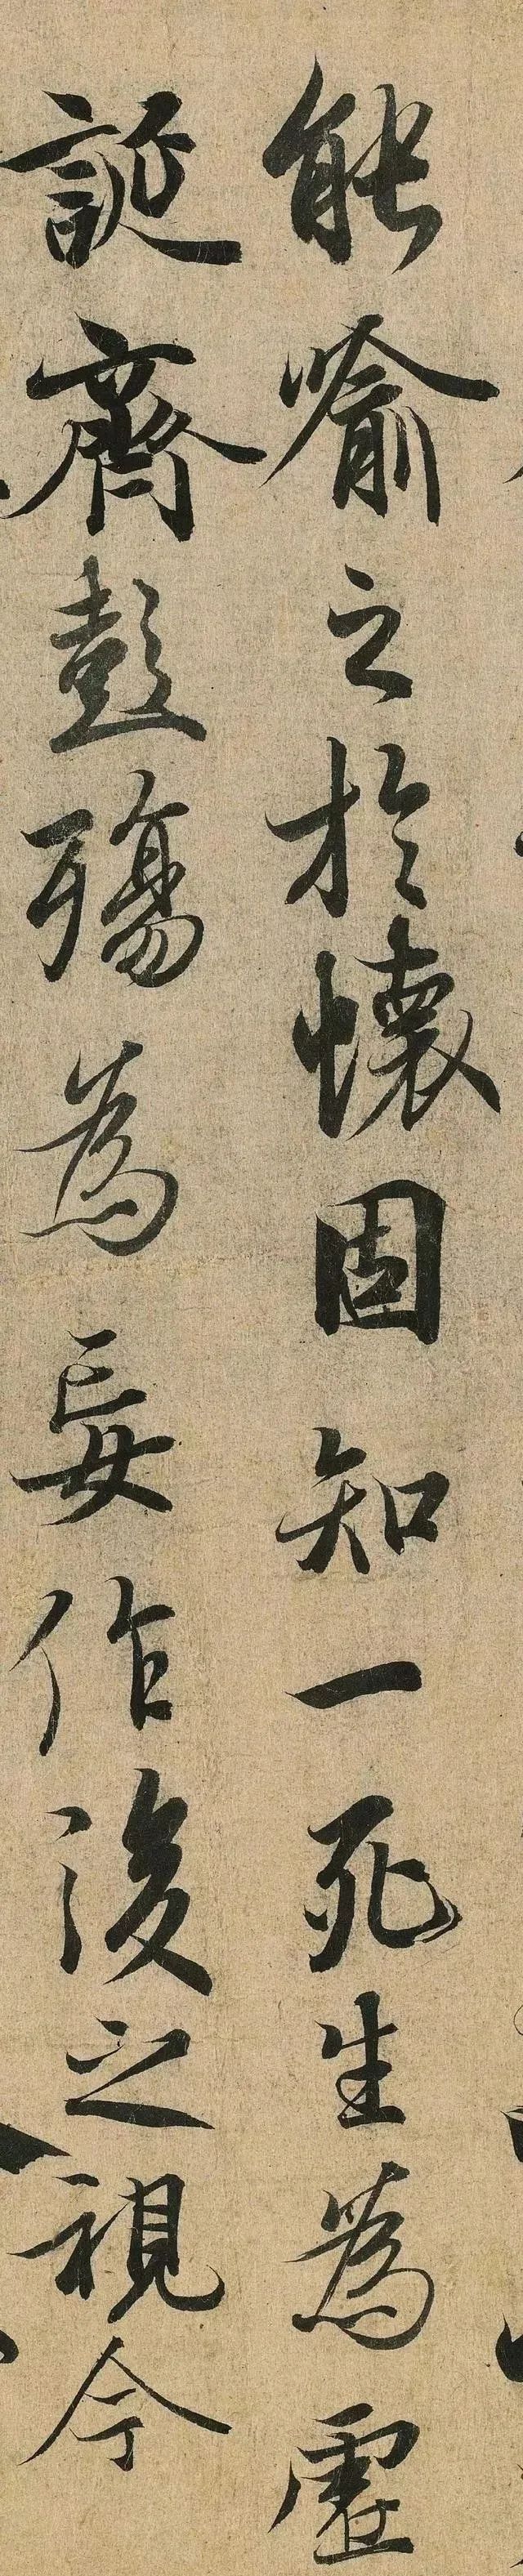 能喻之於懷固知一死生為虛
誕齊彭殤為妄作後之視今